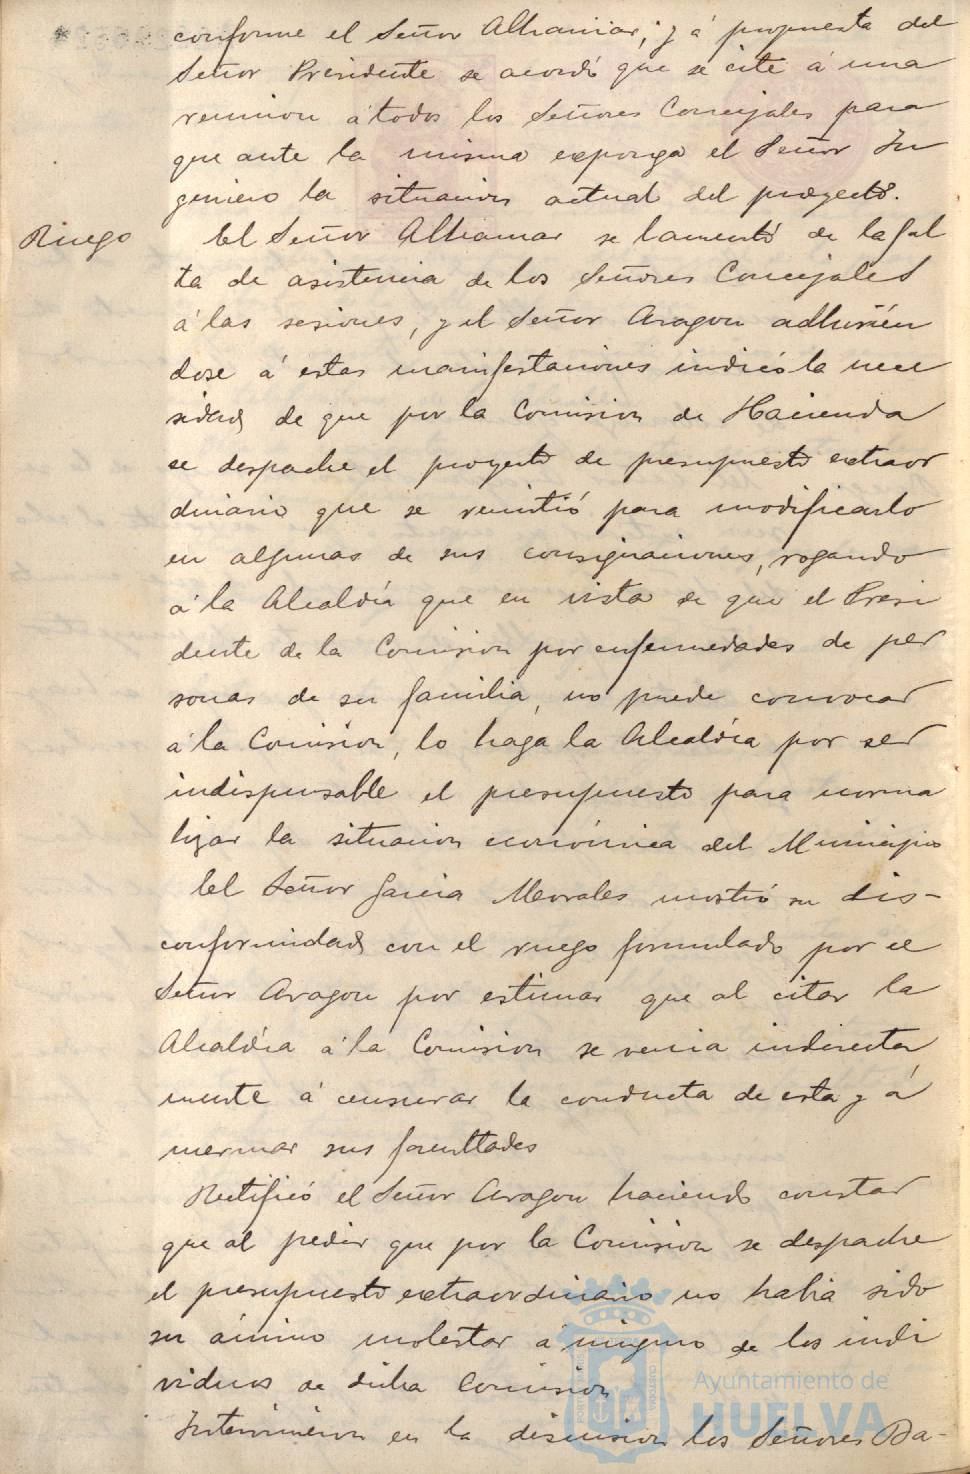 conforme el Señor Alhamar; y á propuesta del
Señor Presidente se acordó que se cite á una
reunion á todos los Señores Concejales para
que ante la misma exponga el Señor In
geniero la situacion actual del proyecto.
Ruego
El Señor Alhamar se lamentó de la fal
ta de asistencia de los Señores Concejales
á las sesiones, y el Señor Aragon adhirién
dose á estas manifestaciones indicó la nece
sidad de que por la Comision de Hacienda
se despache el proyecto de presupuesto extraor
dinario que se remitió para modificarlo
en algunas de sus consignaciones, rogando
á la Alcaldía que en vista de que el Presi
dente de la Comision por enfermedades de per
sonas de su familia, no puede convocar
á la Comision, lo haga la Alcaldía por ser
indispensable el presupuesto para norma
lizar la situacion económica del Municipio
El Señor Garcia Morales mostró su dis-
conformidad con el ruego formulado por el
Señor Aragon por estimar que al citar la
Alcaldía á la Comision se venia indirecta
mente á censurar la conducta de esta y á
mermar sus facultades
Rectificó el Señor Aragon haciendo constar
que al pedir que por la Comision se despache
el presupuesto extraordinario no habia sido
su ánimo molestar á ninguno de los indi
viduos de dicha Comision
Intervinieron en la discusion los Señores Ba-
Ayuntamiento de
HUELVA